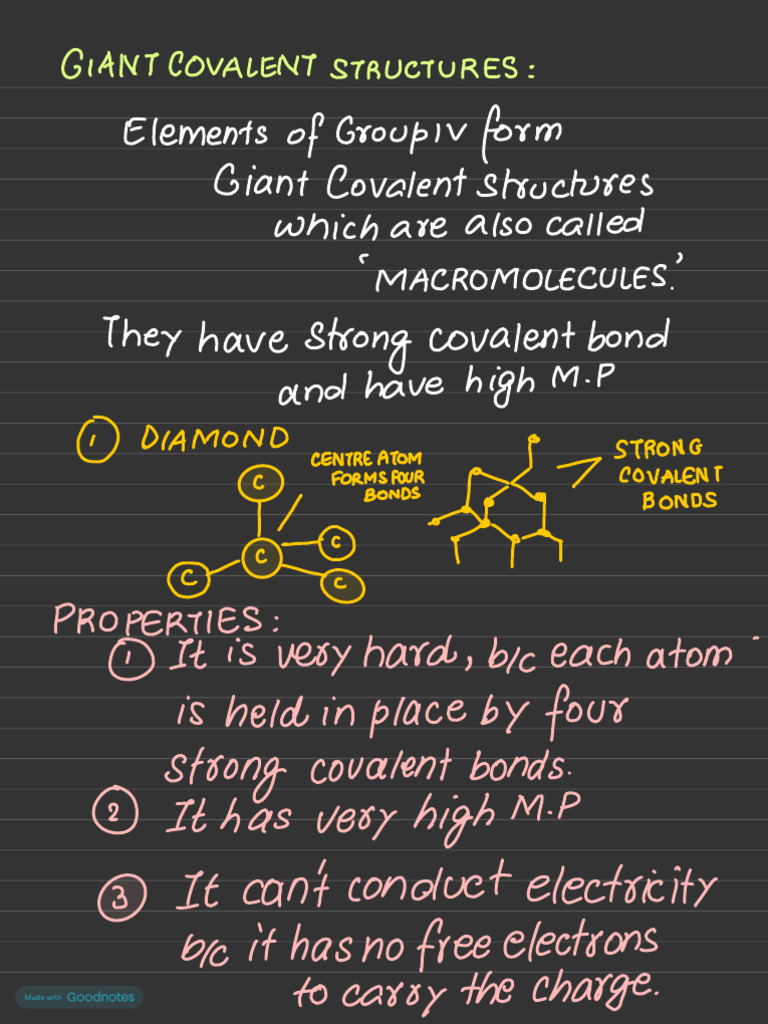 GIANT COVALENT STRUCTURES:
Elements of Group IV form
Giant Covalent structures
which are also called
'MACROMOLECULES.'
They have strong covalent bond
and have high M.P
1 DIAMOND
CENTRE ATOM
FORMS FOUR
BONDS
C
C
C
C
C
STRONG
COVALENT
BONDS
PROPERTIES:
1 It is very hard, b/c each atom
is held in place by four
strong covalent bonds.
2 It has very high M.P
3 It can't conduct electricity
b/c it has no free electrons
to carry the charge.
Made with Goodnotes